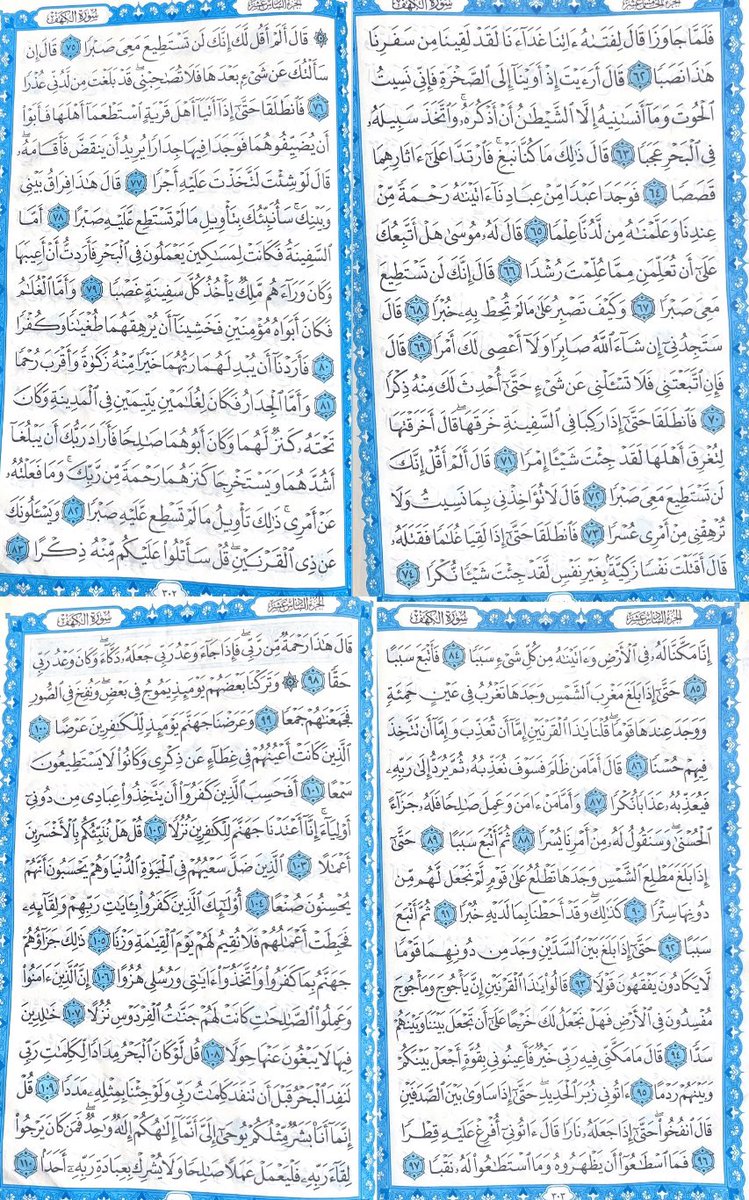 الجزء الخامس عشر سورة الكهف
فَلَمَّا جَاوَزَا قَالَ لِفَتَىٰهُ ءَاتِنَا غَدَآءَنَا لَقَدۡ لَقِينَا مِن سَفَرِنَا
هَٰذَا نَصَبٗا ٦٢ قَالَ أَرَءَيۡتَ إِذۡ أَوَيۡنَآ إِلَى ٱلصَّخۡرَةِ فَإِنِّي نَسِيتُ
ٱلۡحُوتَ وَمَآ أَنسَىٰنِيهُ إِلَّا ٱلشَّيۡطَٰنُ أَنۡ أَذۡكُرَهُۥۚ وَٱتَّخَذَ سَبِيلَهُۥ
فِي ٱلۡبَحۡرِ عَجَبٗا ٦٣ قَالَ ذَٰلِكَ مَا كُنَّا نَبۡغِۚ فَٱرۡتَدَّا عَلَىٰٓ ءَاثَارِهِمَا
قَصَصٗا ٦٤ فَوَجَدَا عَبۡدٗا مِّنۡ عِبَادِنَآ ءَاتَيۡنَٰهُ رَحۡمَةٗ مِّنۡ
عِندِنَا وَعَلَّمۡنَٰهُ مِن لَّدُنَّا عِلۡمٗا ٦٥ قَالَ لَهُۥ مُوسَىٰ هَلۡ أَتَّبِعُكَ
عَلَىٰٓ أَن تُعَلِّمَنِ مِمَّا عُلِّمۡتَ رُشۡدٗا ٦٦ قَالَ إِنَّكَ لَن تَسۡتَطِيعَ
مَعِيَ صَبۡرٗا ٦٧ وَكَيۡفَ تَصۡبِرُ عَلَىٰ مَا لَمۡ تُحِطۡ بِهِۦ خُبۡرٗا ٦٨ قَالَ
سَتَجِدُنِيٓ إِن شَآءَ ٱللَّهُ صَابِرٗا وَلَآ أَعۡصِي لَكَ أَمۡرٗا ٦٩ قَالَ
فَإِنِ ٱتَّبَعۡتَنِي فَلَا تَسۡـَٔلۡنِي عَن شَيۡءٍ حَتَّىٰٓ أُحۡدِثَ لَكَ مِنۡهُ ذِكۡرٗا
٧٠ فَٱنطَلَقَا حَتَّىٰٓ إِذَا رَكِبَا فِي ٱلسَّفِينَةِ خَرَقَهَاۖ قَالَ أَخَرَقۡتَهَا
لِتُغۡرِقَ أَهۡلَهَا لَقَدۡ جِئۡتَ شَيۡـًٔا إِمۡرٗا ٧١ قَالَ أَلَمۡ أَقُلۡ إِنَّكَ
لَن تَسۡتَطِيعَ مَعِيَ صَبۡرٗا ٧٢ قَالَ لَا تُؤَاخِذۡنِي بِمَا نَسِيتُ وَلَا
تُرۡهِقۡنِي مِنۡ أَمۡرِي عُسۡرٗا ٧٣ فَٱنطَلَقَا حَتَّىٰٓ إِذَا لَقِيَا غُلَٰمٗا فَقَتَلَهُۥ
قَالَ أَقَتَلۡتَ نَفۡسٗا زَكِيَّةَۢ بِغَيۡرِ نَفۡسٖ لَّقَدۡ جِئۡتَ شَيۡـٔٗا نُّكۡرٗا ٧٤
الجزء السادس عشر سورة الكهف
۞ قَالَ أَلَمۡ أَقُل لَّكَ إِنَّكَ لَن تَسۡتَطِيعَ مَعِيَ صَبۡرٗا ٧٥ قَالَ إِن
سَأَلۡتُكَ عَن شَيۡءِۭ بَعۡدَهَا فَلَا تُصَٰحِبۡنِيۖ قَدۡ بَلَغۡتَ مِن لَّدُنِّي عُذۡرٗا
٧٦ فَٱنطَلَقَا حَتَّىٰٓ إِذَآ أَتَيَآ أَهۡلَ قَرۡيَةٍ ٱسۡتَطۡعَمَآ أَهۡلَهَا فَأَبَوۡاْ
أَن يُضَيِّفُوهُمَا فَوَجَدَا فِيهَا جِدَارٗا يُرِيدُ أَن يَنقَضَّ فَأَقَامَهُۥۖ
قَالَ لَوۡ شِئۡتَ لَتَّخَذۡتَ عَلَيۡهِ أَجۡرٗا ٧٧ قَالَ هَٰذَا فِرَاقُ بَيۡنِي
وَبَيۡنِكَۚ سَأُنَبِّئُكَ بِتَأۡوِيلِ مَا لَمۡ تَسۡتَطِع عَّلَيۡهِ صَبۡرًا ٧٨ أَمَّا
ٱلسَّفِينَةُ فَكَانَتۡ لِمَسَٰكِينَ يَعۡمَلُونَ فِي ٱلۡبَحۡرِ فَأَرَدتُّ أَنۡ أَعِيبَهَا
وَكَانَ وَرَآءَهُم مَّلِكٞ يَأۡخُذُ كُلَّ سَفِينَةٍ غَصۡبٗا ٧٩ وَأَمَّا ٱلۡغُلَٰمُ
فَكَانَ أَبَوَاهُ مُؤۡمِنَيۡنِ فَخَشِينَآ أَن يُرۡهِقَهُمَا طُغۡيَٰنٗا وَكُفۡرٗا
٨٠ فَأَرَدۡنَآ أَن يُبۡدِلَهُمَا رَبُّهُمَا خَيۡرٗا مِّنۡهُ زَكَوٰةٗ وَأَقۡرَبَ رُحۡمٗا
٨١ وَأَمَّا ٱلۡجِدَارُ فَكَانَ لِغُلَٰمَيۡنِ يَتِيمَيۡنِ فِي ٱلۡمَدِينَةِ وَكَانَ
تَحۡتَهُۥ كَنزٞ لَّهُمَا وَكَانَ أَبُوهُمَا صَٰلِحٗا فَأَرَادَ رَبُّكَ أَن يَبۡلُغَآ
أَشُدَّهُمَا وَيَسۡتَخۡرِجَا كَنزَهُمَا رَحۡمَةٗ مِّن رَّبِّكَۚ وَمَا فَعَلۡتُهُۥ
عَنۡ أَمۡرِيۚ ذَٰلِكَ تَأۡوِيلُ مَا لَمۡ تَسۡطِع عَّلَيۡهِ صَبۡرٗا ٨٢ وَيَسۡـَٔلُونَكَ
عَن ذِي ٱلۡقَرۡنَيۡنِۖ قُلۡ سَأَتۡلُواْ عَلَيۡكُم مِّنۡهُ ذِكۡرًا ٨٣
٣٠٢
الجزء السادس عشر سورة الكهف
إِنَّا مَكَّنَّا لَهُۥ فِي ٱلۡأَرۡضِ وَءَاتَيۡنَٰهُ مِن كُلِّ شَيۡءٖ سَبَبٗا ٨٤ فَأَتۡبَعَ سَبَبًا
٨٥ حَتَّىٰٓ إِذَا بَلَغَ مَغۡرِبَ ٱلشَّمۡسِ وَجَدَهَا تَغۡرُبُ فِي عَيۡنٍ حَمِئَةٖ
وَوَجَدَ عِندَهَا قَوۡمٗاۖ قُلۡنَا يَٰذَا ٱلۡقَرۡنَيۡنِ إِمَّآ أَن تُعَذِّبَ وَإِمَّآ أَن تَتَّخِذَ
فِيهِمۡ حُسۡنٗا ٨٦ قَالَ أَمَّا مَن ظَلَمَ فَسَوۡفَ نُعَذِّبُهُۥ ثُمَّ يُرَدُّ إِلَىٰ رَبِّهِۦ
فَيُعَذِّبُهُۥ عَذَابٗا نُّكۡرٗا ٨٧ وَأَمَّا مَنۡ ءَامَنَ وَعَمِلَ صَٰلِحٗا فَلَهُۥ جَزَآءً
ٱلۡحُسۡنَىٰۖ وَسَنَقُولُ لَهُۥ مِنۡ أَمۡرِنَا يُسۡرٗا ٨٨ ثُمَّ أَتۡبَعَ سَبَبًا ٨٩ حَتَّىٰٓ
إِذَا بَلَغَ مَطۡلِعَ ٱلشَّمۡسِ وَجَدَهَا تَطۡلُعُ عَلَىٰ قَوۡمٖ لَّمۡ نَجۡعَل لَّهُم مِّن
دُونِهَا سِتۡرٗا ٩٠ كَذَٰلِكَۖ وَقَدۡ أَحَطۡنَا بِمَا لَدَيۡهِ خُبۡرٗا ٩١ ثُمَّ أَتۡبَعَ
سَبَبًا ٩٢ حَتَّىٰٓ إِذَا بَلَغَ بَيۡنَ ٱلسَّدَّيۡنِ وَجَدَ مِن دُونِهِمَا قَوۡمٗا
لَّا يَكَادُونَ يَفۡقَهُونَ قَوۡلٗا ٩٣ قَالُواْ يَٰذَا ٱلۡقَرۡنَيۡنِ إِنَّ يَأۡجُوجَ وَمَأۡجُوجَ
مُفۡسِدُونَ فِي ٱلۡأَرۡضِ فَهَلۡ نَجۡعَلُ لَكَ خَرۡجًا عَلَىٰٓ أَن تَجۡعَلَ بَيۡنَنَا وَبَيۡنَهُمۡ
سَدّٗا ٩٤ قَالَ مَا مَكَّنِّي فِيهِ رَبِّي خَيۡرٞ فَأَعِينُونِي بِقُوَّةٍ أَجۡعَلۡ بَيۡنَكُمۡ
وَبَيۡنَهُمۡ رَدۡمًا ٩٥ ءَاتُونِي زُبَرَ ٱلۡحَدِيدِۖ حَتَّىٰٓ إِذَا سَاوَىٰ بَيۡنَ ٱلصَّدَفَيۡنِ
قَالَ ٱنفُخُواْۖ حَتَّىٰٓ إِذَا جَعَلَهُۥ نَارٗا قَالَ ءَاتُونِيٓ أُفۡرِغۡ عَلَيۡهِ قِطۡرٗا
٩٦ فَمَا ٱسۡطَٰعُوٓاْ أَن يَظۡهَرُوهُ وَمَا ٱسۡتَطَٰعُواْ لَهُۥ نَقۡبٗا ٩٧
٣٠٣
الجزء السادس عشر سورة الكهف
قَالَ هَٰذَا رَحۡمَةٞ مِّن رَّبِّيۖ فَإِذَا جَآءَ وَعۡدُ رَبِّي جَعَلَهُۥ دَكَّآءَۖ وَكَانَ وَعۡدُ رَبِّي
حَقّٗا ٩٨ ۞ وَتَرَكۡنَا بَعۡضَهُمۡ يَوۡمَئِذٖ يَمُوجُ فِي بَعۡضٖۖ وَنُفِخَ فِي ٱلصُّورِ
فَجَمَعۡنَٰهُمۡ جَمۡعٗا ٩٩ وَعَرَضۡنَا جَهَنَّمَ يَوۡمَئِذٖ لِّلۡكَٰفِرِينَ عَرۡضًا ١٠٠
ٱلَّذِينَ كَانَتۡ أَعۡيُنُهُمۡ فِي غِطَآءٍ عَن ذِكۡرِي وَكَانُواْ لَا يَسۡتَطِيعُونَ
سَمۡعًا ١٠١ أَفَحَسِبَ ٱلَّذِينَ كَفَرُوٓاْ أَن يَتَّخِذُواْ عِبَادِي مِن دُونِيٓ
أَوۡلِيَآءَۚ إِنَّآ أَعۡتَدۡنَا جَهَنَّمَ لِلۡكَٰفِرِينَ نُزُلٗا ١٠٢ قُلۡ هَلۡ نُنَبِّئُكُم بِٱلۡأَخۡسَرِينَ
أَعۡمَٰلًا ١٠٣ ٱلَّذِينَ ضَلَّ سَعۡيُهُمۡ فِي ٱلۡحَيَوٰةِ ٱلدُّنۡيَا وَهُمۡ يَحۡسَبُونَ أَنَّهُمۡ
يُحۡسِنُونَ صُنۡعًا ١٠٤ أُوْلَٰٓئِكَ ٱلَّذِينَ كَفَرُواْ بِـَٔايَٰتِ رَبِّهِمۡ وَلِقَآئِهِۦ
فَحَبِطَتۡ أَعۡمَٰلُهُمۡ فَلَا نُقِيمُ لَهُمۡ يَوۡمَ ٱلۡقِيَٰمَةِ وَزۡنٗا ١٠٥ ذَٰلِكَ جَزَآؤُهُمۡ
جَهَنَّمُ بِمَا كَفَرُواْ وَٱتَّخَذُوٓاْ ءَايَٰتِي وَرُسُلِي هُزُوًا ١٠٦ إِنَّ ٱلَّذِينَ ءَامَنُواْ
وَعَمِلُواْ ٱلصَّٰلِحَٰتِ كَانَتۡ لَهُمۡ جَنَّٰتُ ٱلۡفِرۡدَوۡسِ نُزُلًا ١٠٧ خَٰلِدِينَ
فِيهَا لَا يَبۡغُونَ عَنۡهَا حِوَلٗا ١٠٨ قُل لَّوۡ كَانَ ٱلۡبَحۡرُ مِدَادٗا لِّكَلِمَٰتِ رَبِّي
لَنَفِدَ ٱلۡبَحۡرُ قَبۡلَ أَن تَنفَدَ كَلِمَٰتُ رَبِّي وَلَوۡ جِئۡنَا بِمِثۡلِهِۦ مَدَدٗا ١٠٩ قُلۡ
إِنَّمَآ أَنَا۠ بَشَرٞ مِّثۡلُكُمۡ يُوحَىٰٓ إِلَيَّ أَنَّمَآ إِلَٰهُكُمۡ إِلَٰهٞ وَٰحِدٞۖ فَمَن كَانَ يَرۡجُواْ
لِقَآءَ رَبِّهِۦ فَلۡيَعۡمَلۡ عَمَلٗا صَٰلِحٗا وَلَا يُشۡرِكۡ بِعِبَادَةِ رَبِّهِۦٓ أَحَدَۢا ١١٠